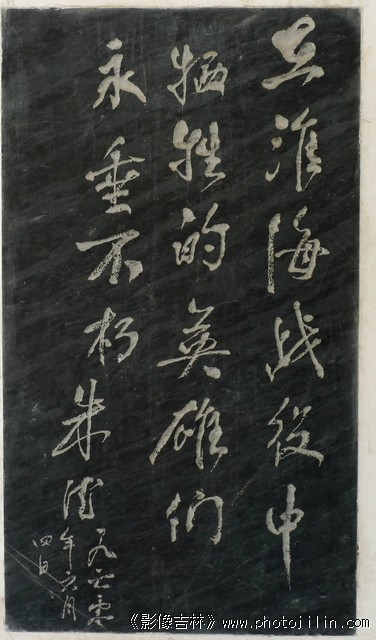 在淮海战役中
牺牲的英雄们
永垂不朽 朱德 一九六零
年六月
四日
《影像吉林》www.photojilin.com